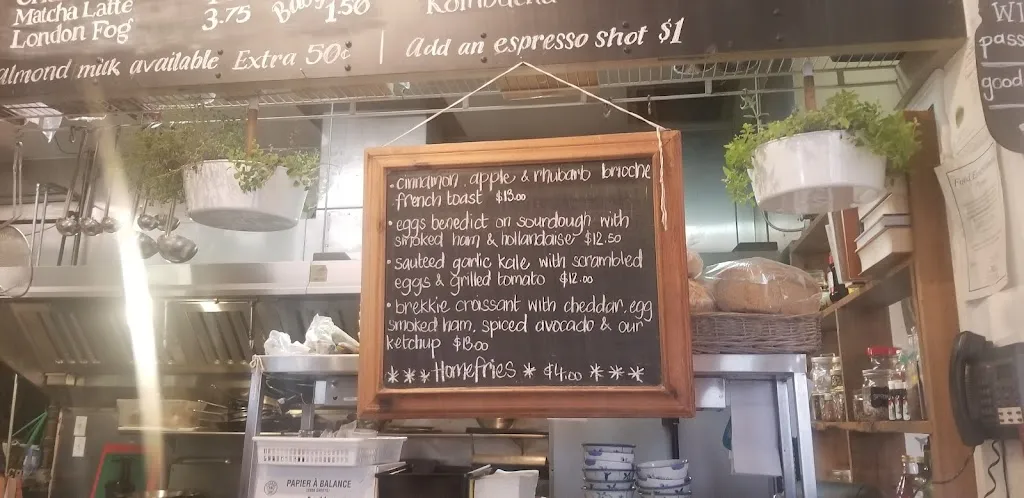 Matcha Latte
London Fog
3.75
1.50
Kombucha
almond milk available Extra 50¢
Add an espresso shot $1
• cinnamon, apple & rhubarb brioche
french toast $13.00
• eggs benedict on sourdough with
smoked ham & hollandaise $12.50
• sauteed garlic kale with scrambled
eggs & grilled tomato $12.00
• brekkie croissant with cheddar, egg
smoked ham, spiced avocado & our
ketchup $13.00
*** Homefries * $4.00 ***
PAPIER À BALANCE
pass
good